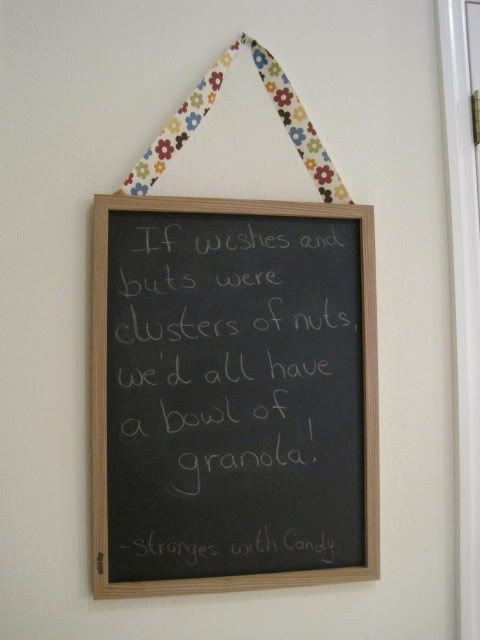 If wishes and
buts were
clusters of nuts,
we'd all have
a bowl of
granola!
-Stranges with Candy